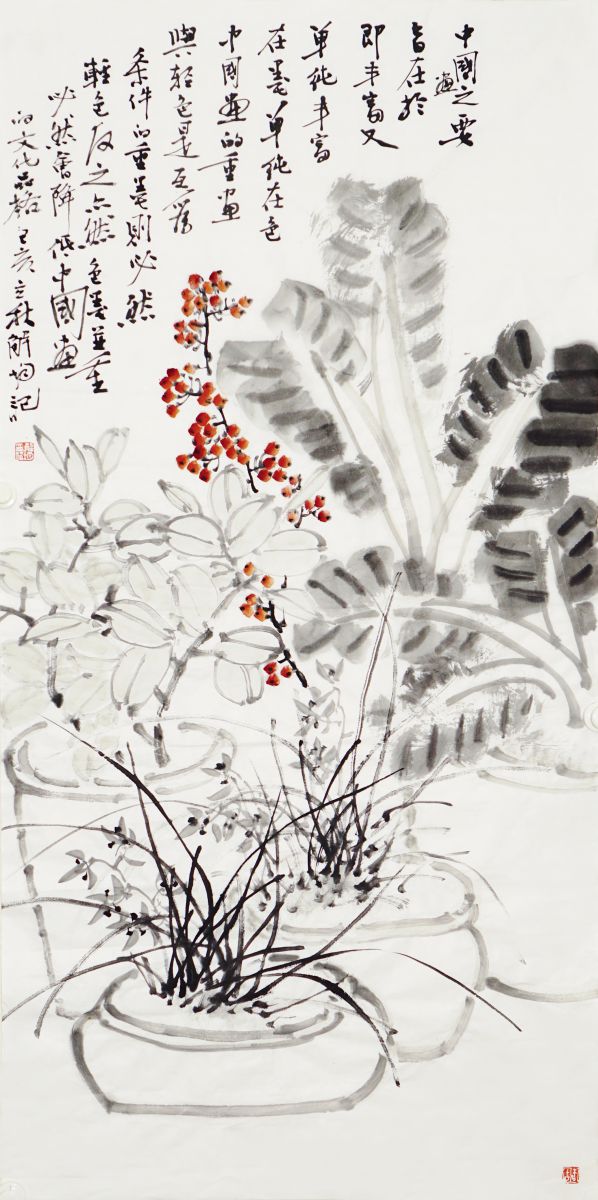 中國畫之要
旨在於
即丰富又
单纯丰富
在墨单纯在色
中國畫的重畫
與輕色是互為
条件的重墨則必然
輕色反之亦然色墨並重
必然會降低中國畫
的文化品格己亥立秋解记